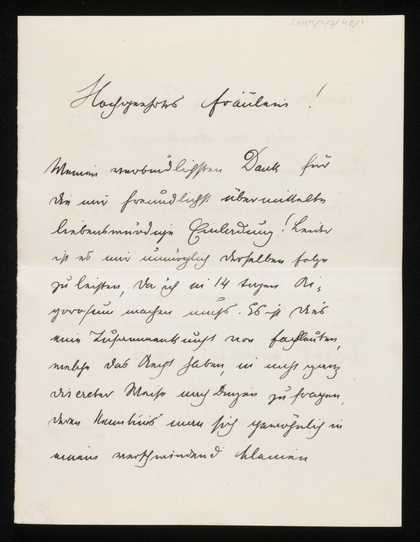 Hochgeehrtes Fräulein!
Meinen verbindlichsten Dank für
die mir freundlichst übermittelte
liebenswürdige Einladung! Leider
ist es mir unmöglich derselben folge
zu leisten, da ich in 14 tagen Ri-
gorosum machen muß. Es ist dies
eine Zusammenkunft von Fachleuten,
welche das Recht haben, in nicht ganz
discreter Weise nach Dingen zu fragen,
deren Kenntnis man sich gewöhnlich in
einem verschwindend kleinen